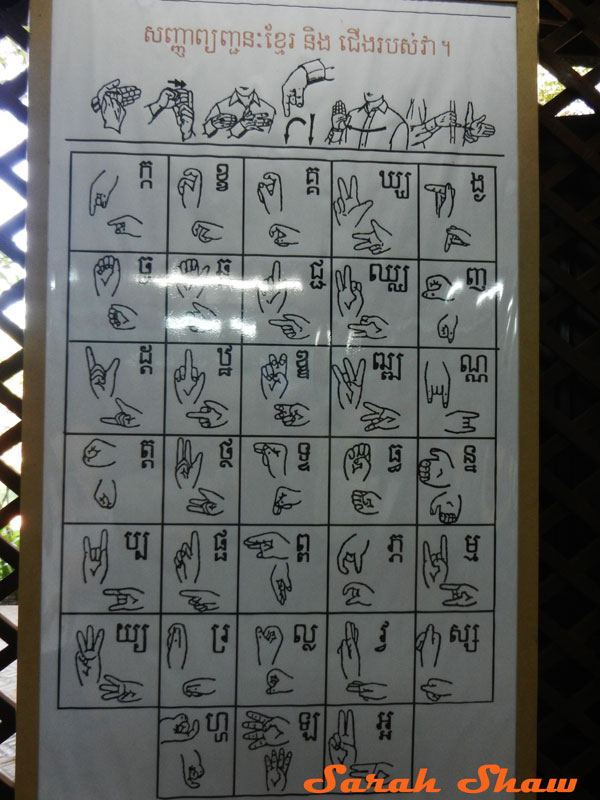 សញ្ញាព្យញ្ជនៈខ្មែរ និង ជើងរបស់វា ។
ក្ក ខ្ខ គ្គ ឃ្ឃ ង្ង
ច្ច ឆ្ឆ ជ្ជ ឈ្ឈ ញ
ដ្ដ ឋ្ឋ ឌ្ឌ ឍ្ឍ ណ្ណ
ត្ត ថ្ថ ទ្ទ ធ្ធ ន្ន
ប្ប ផ្ផ ព្ព ភ្ភ ម្ម
យ្យ រ្រ ល្ល វ្វ ស្ស
ហ្ហ ឡ អ្អ
Sarah Shaw